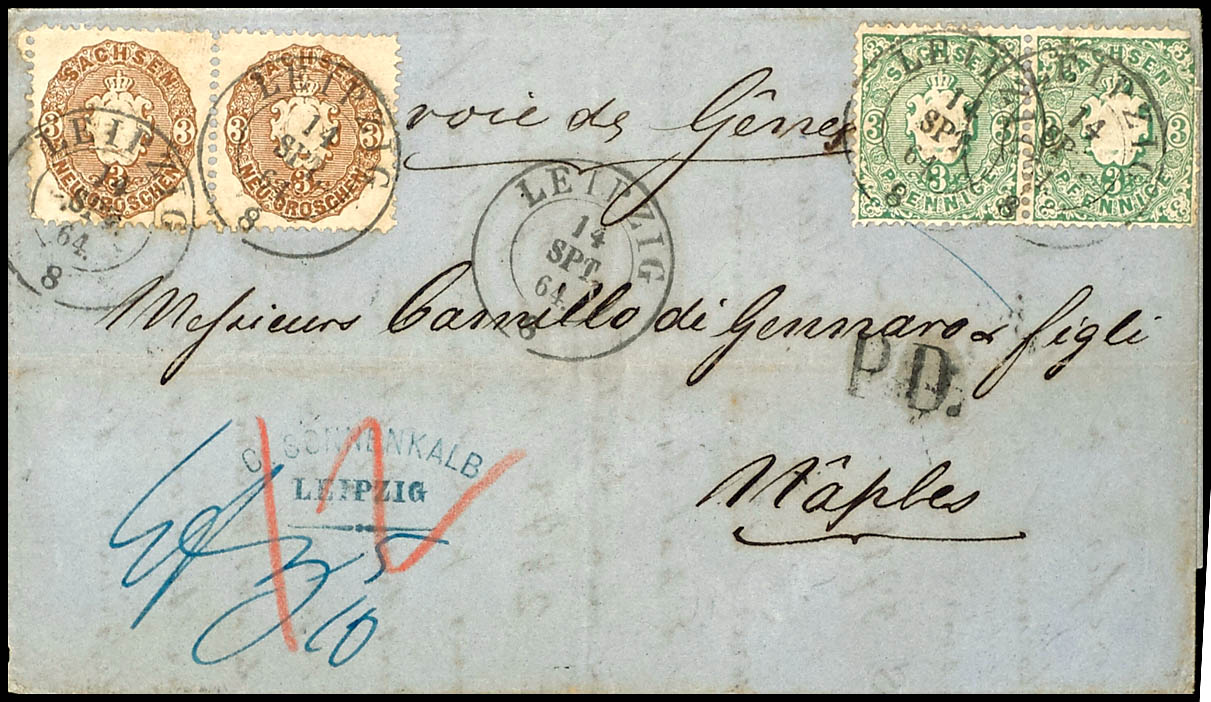 SACHSEN
3 3
NEUGROSCHEN
3
SACHSEN
3 3
NEUGROSCHEN
3
SACHSEN
3 3
PFENNIGE
3
SACHSEN
3 3
PFENNIGE
3
LEIPZIG
14
SPT.
64.
8
LEIPZIG
14
SPT.
64.
8
LEIPZIG
14
SPT.
64.
8
LEIPZIG
14
SPT.
64.
8
voie de Gênes
LEIPZIG
14
SPT.
64.
8
Messieurs Camillo di Gennaro & figli
P.D.
Nâples
C. SONNENKALB
LEIPZIG
10